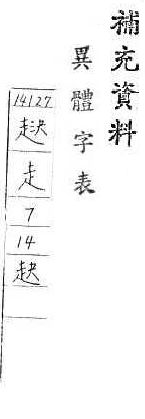 補充資料
異體字表
14127
走
7
14
赽